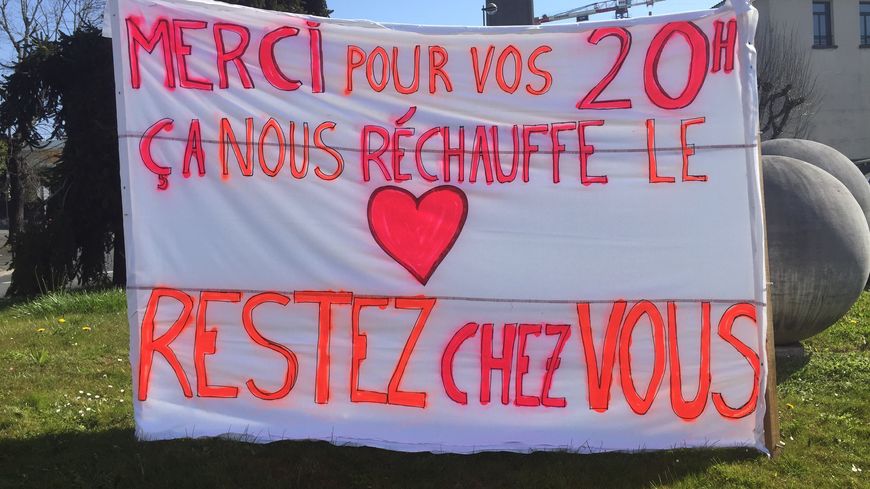 MERCI POUR VOS 20H
ÇA NOUS RÉCHAUFFE LE
RESTEZ CHEZ VOUS